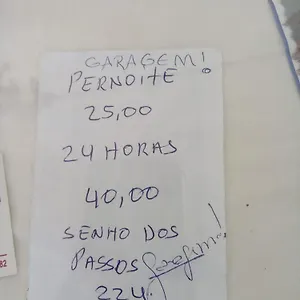 GARAGEM!
PERNOITE
25,00
24 HORAS
40,00
SENHO DOS
PASSOS Garagem!
224
82